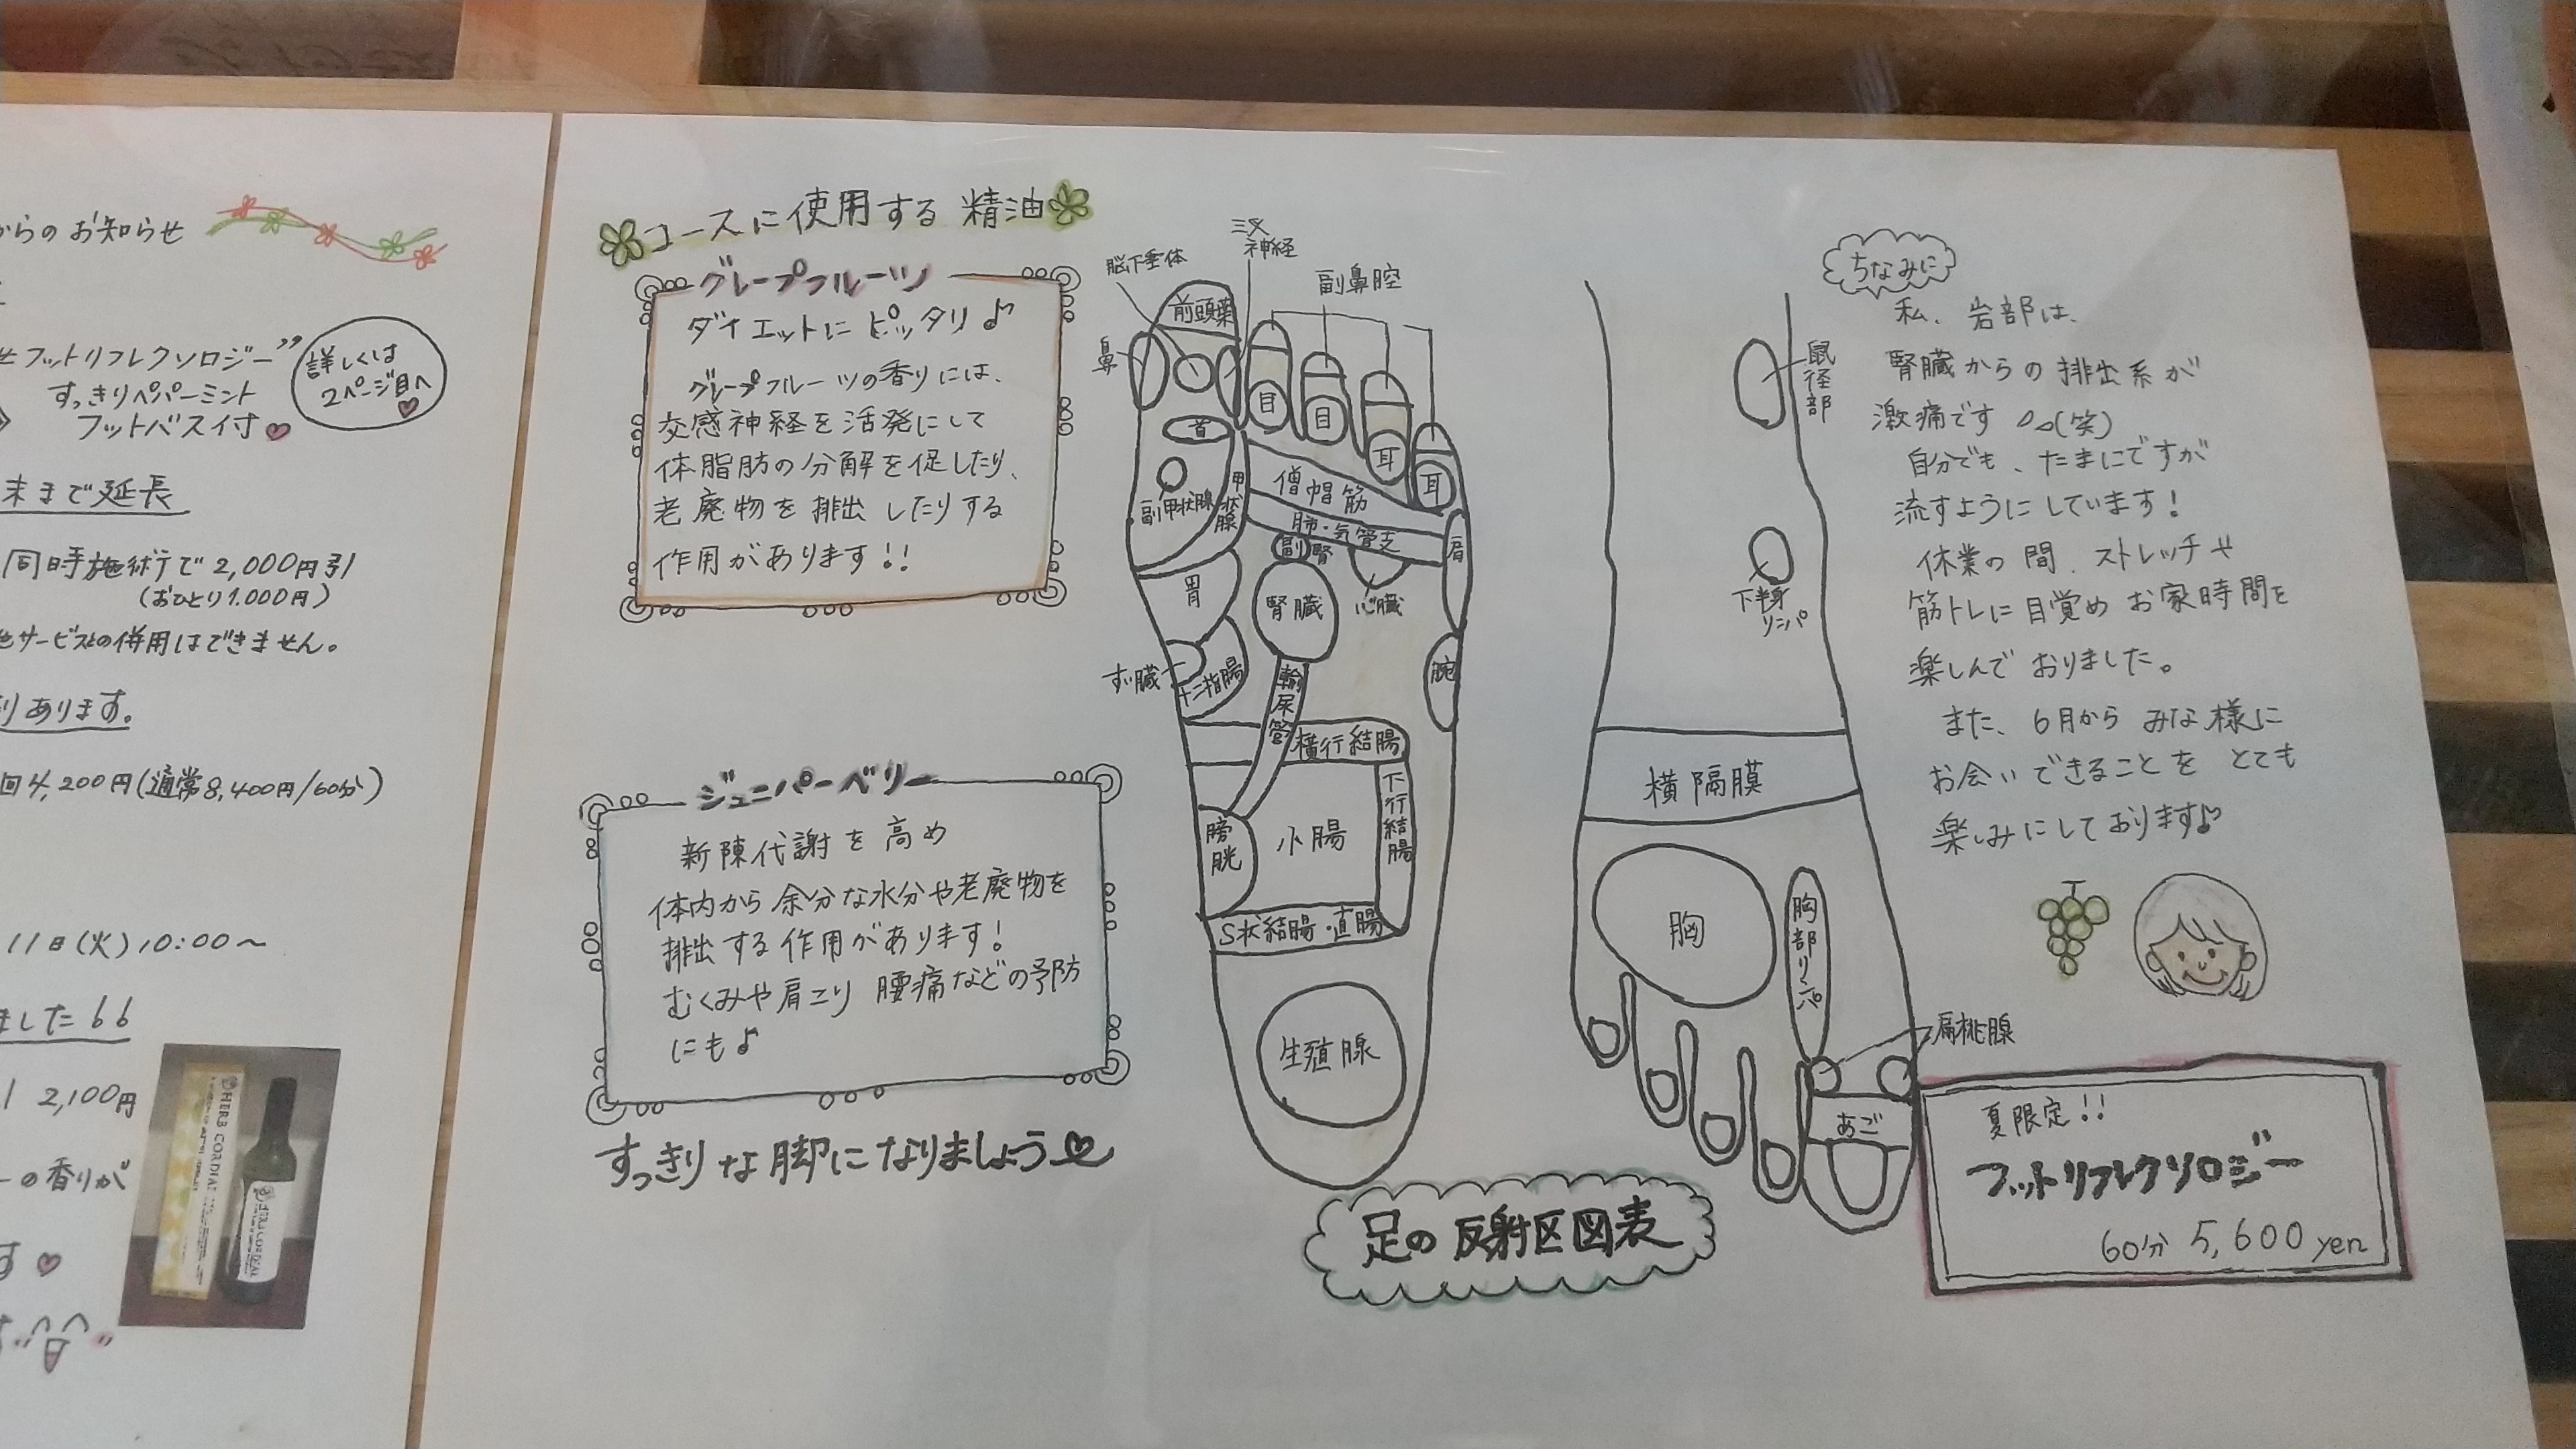 からのお知らせ
せフットリフレクソロジー”
すっきりペパーミント
フットバス付
詳しくは
2ページ目へ
末まで延長
同時施術で2,000円引
(おひとり1.000円)
サービスとの併用はできません。
りあります。
回4,200円(通常8,400円/60分)
11日(火)10:00～
ました
2,100円
ーの香りが
す
HERB CORDIAL
コースに使用する精油
グレープフルーツ
ダイエットにピッタリ♪
グレープフルーツの香りには、
交感神経を活発にして
体脂肪の分解を促したり、
老廃物を排出したりする
作用があります!!
ジュニパーベリー
新陳代謝を高め
体内から余分な水分や老廃物を
排出する作用があります!
むくみや肩こり腰痛などの予防
にも♪
すっきりな脚になりましょう
脳下垂体
三叉
神経
副鼻腔
前頭葉
鼻
目
目
耳
耳
首
副甲状腺
甲状腺
僧帽筋
肺・気管支
肩
副腎
心臓
胃
腎臓
すい臓
十二指腸
輸尿管
腕
横行結腸
下行結腸
膀胱
小腸
S状結腸・直腸
生殖腺
足の反射区図表
鼠径部
下半身
リンパ
横隔膜
胸
胸部リンパ
扁桃腺
あご
ちなみに
私、岩部は、
腎臓からの排出系が
激痛です(笑)
自分でも、たまにですが
流すようにしています!
休業の間、ストレッチや
筋トレに目覚めお家時間を
楽しんでおりました。
また、6月からみな様に
お会いできることをとても
楽しみにしております♪
夏限定!!
フットリフレクソロジー
60分 5,600yen